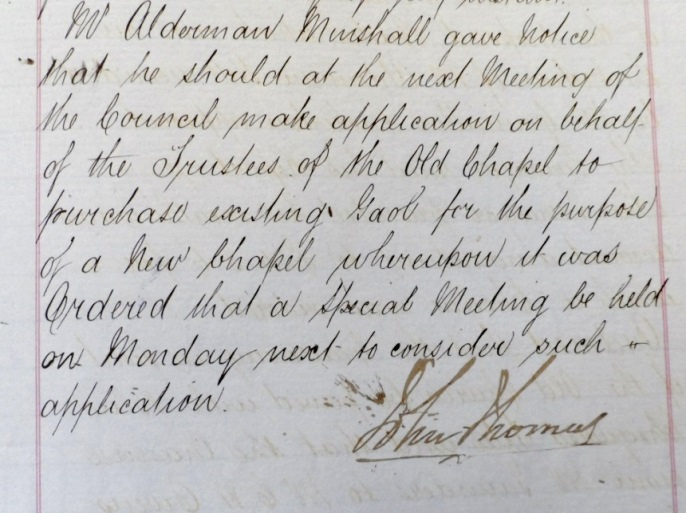 Mr Alderman Minshall gave Notice
that he should at the next Meeting of
the Council make application on behalf
of the Trustees of the Old Chapel to
purchase existing Gaol for the purpose
of a New Chapel whereupon it was
Ordered that a Special Meeting be held
on Monday next to consider such
application
John Thomas